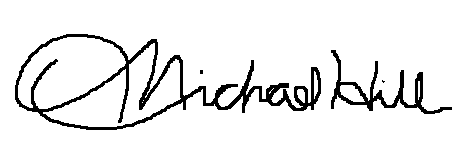 Michael Hill